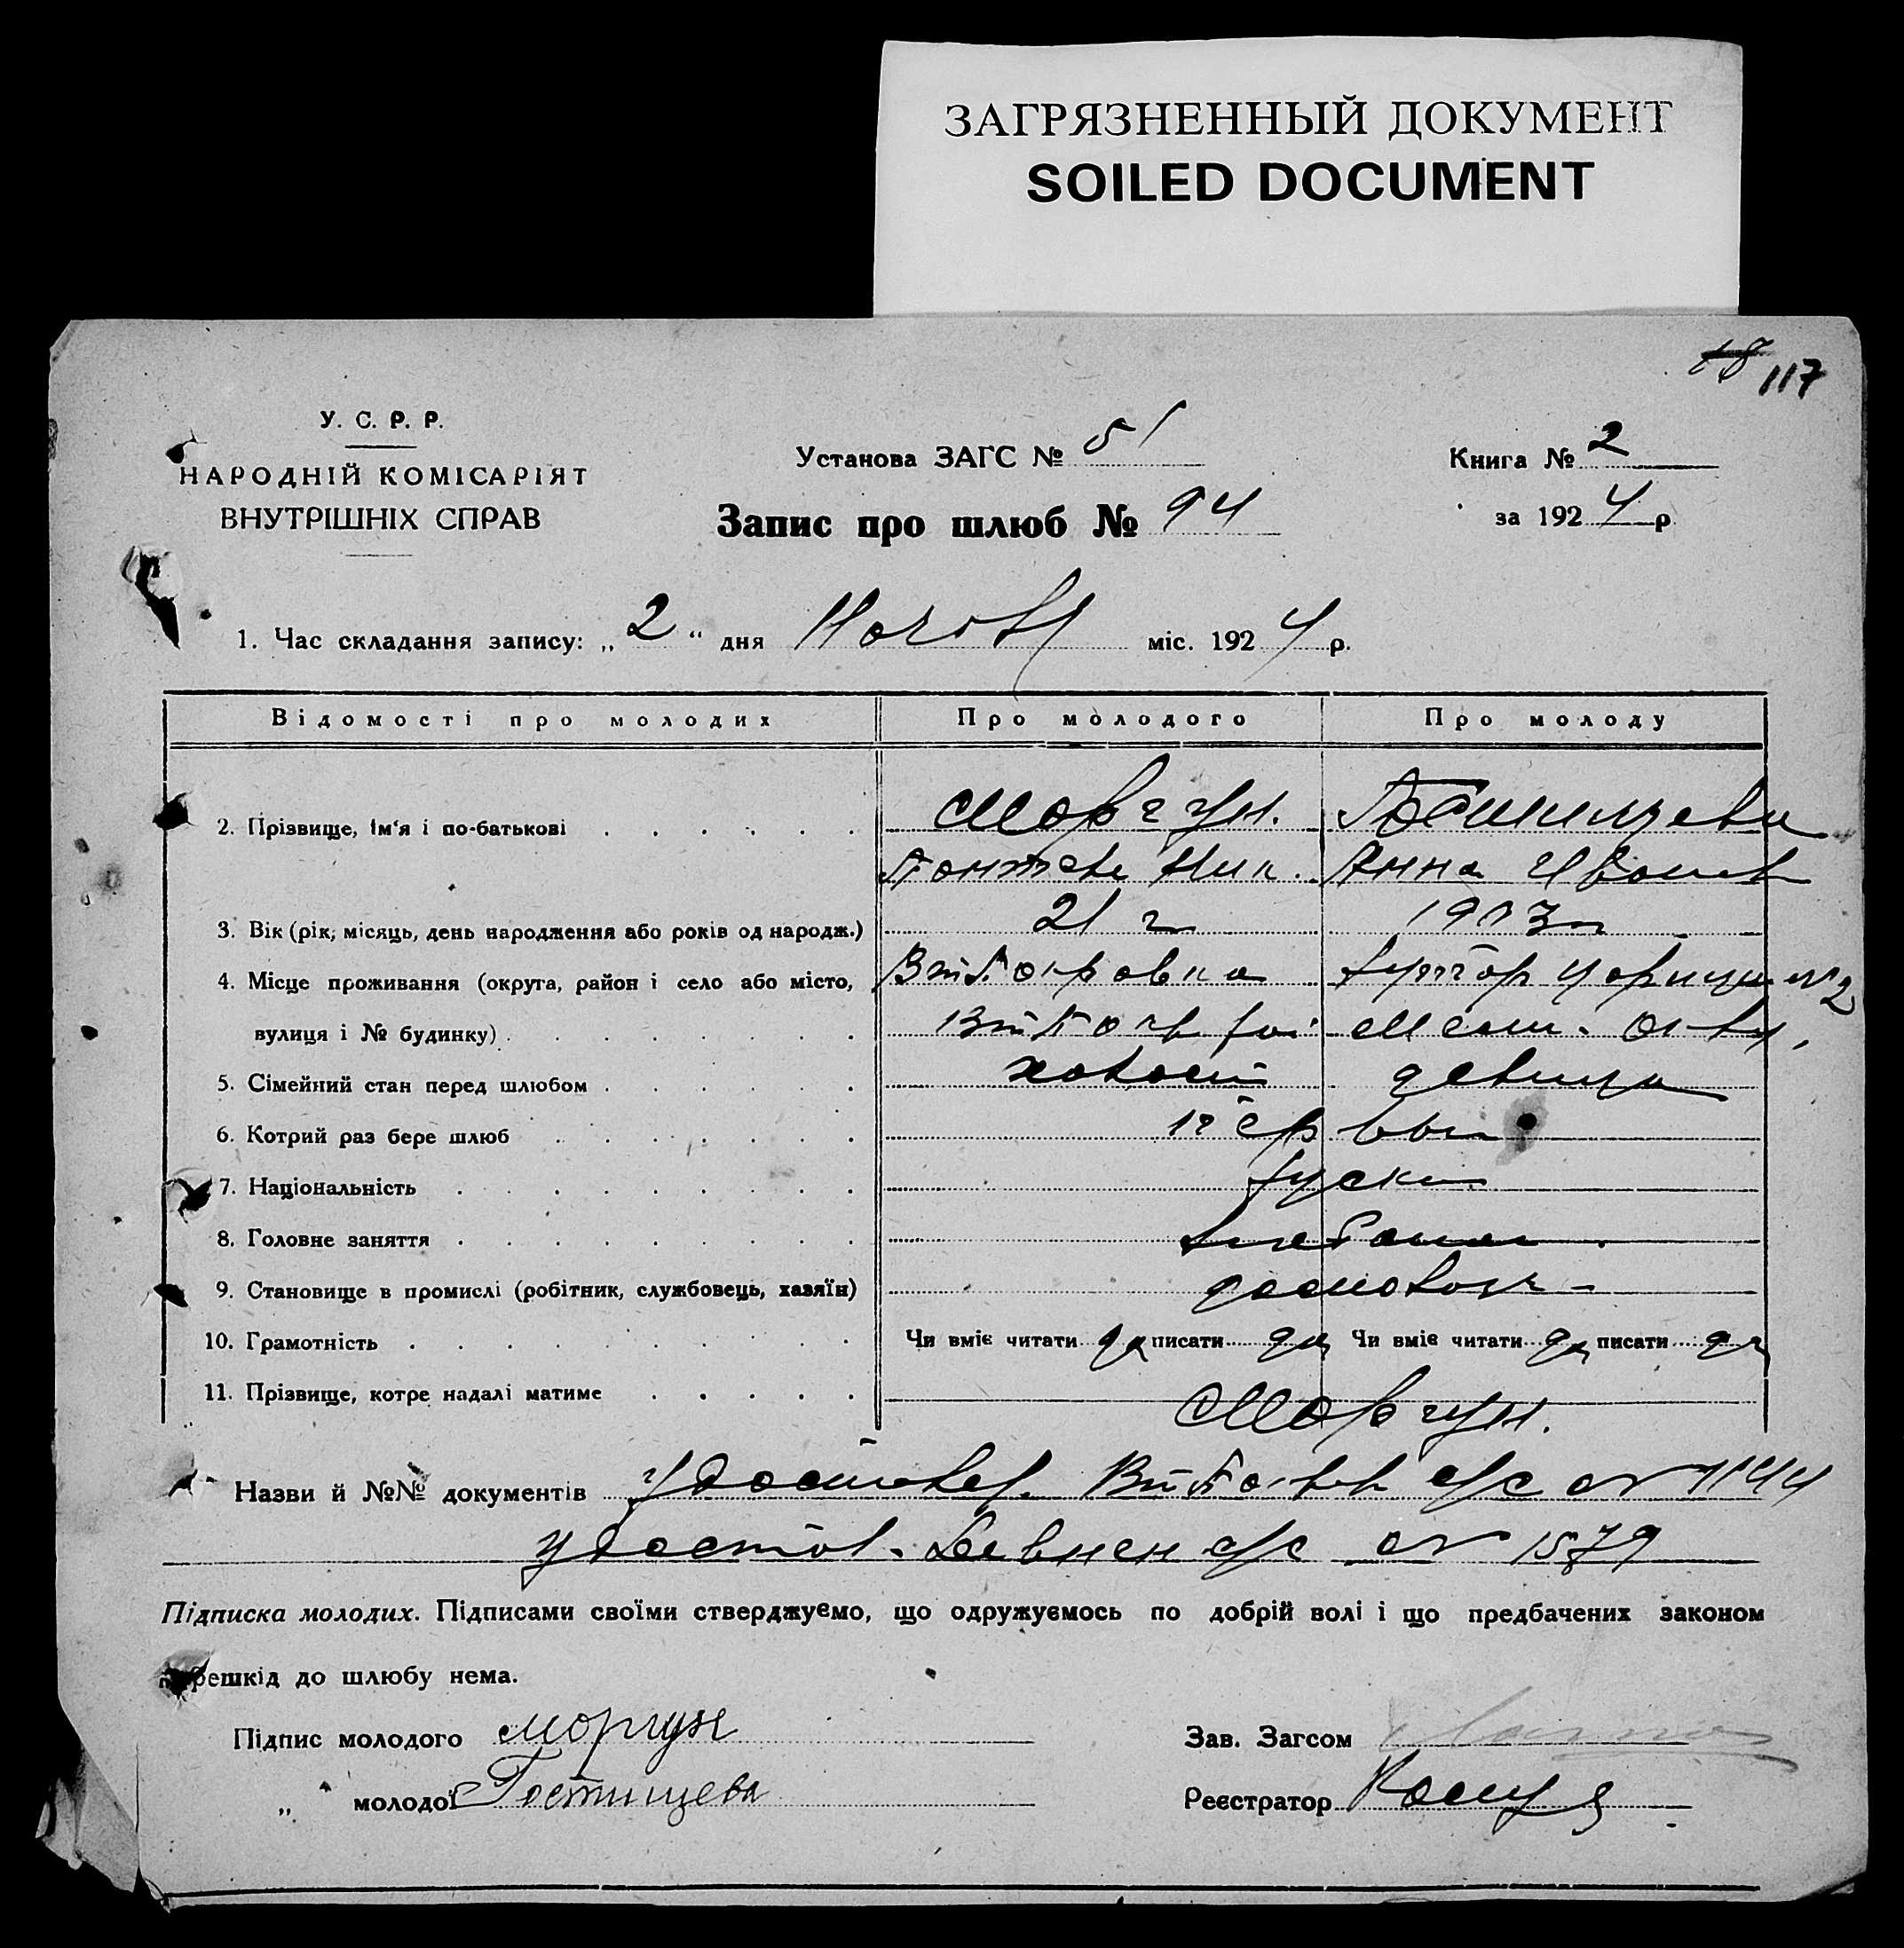 ЗАГРЯЗНЕННЫЙ ДОКУМЕНТ
SOILED DOCUMENT
18 117
У. С. Р. Р.
НАРОДНІЙ КОМІСАРІЯТ
ВНУТРІШНІХ СПРАВ
Установа ЗАГС № 51
Книга № 2
Запис про шлюб № 94
за 1924 р
1. Час складання запису: „2“ дня міс. 1924 р.
Відомості про молодих Про молодого Про молоду
2. Прізвище, ім'я і по-батькові Моргун. Гостищева
Ник. Анна Иванов
3. Вік (рік, місяць, день народження або років од народж.) 21 г 1903 г
4. Місце проживання (округа, район і село або місто, хутор №2
вулиця і № будинку)
5. Сімейний стан перед шлюбом холост девица
6. Котрий раз бере шлюб первый
7. Національність руский
8. Головне заняття хлебопаш
9. Становище в промислі (робітник, службовець, хазяїн) домохоз
10. Грамотність Чи вміє читати да писати да Чи вміє читати да писати да
11. Прізвище, котре надалі матиме Моргун.
Назви й №№ документів Удостовер. с/с № 1144
Удостов. с/с № 1579
Підписка молодих. Підписами своїми стверджуємо, що одружуємось по добрій волі і що предбачених законом
перешкід до шлюбу нема.
Підпис молодого Моргун
Зав. Загсом
„ молодої Гостищева
Реєстратор